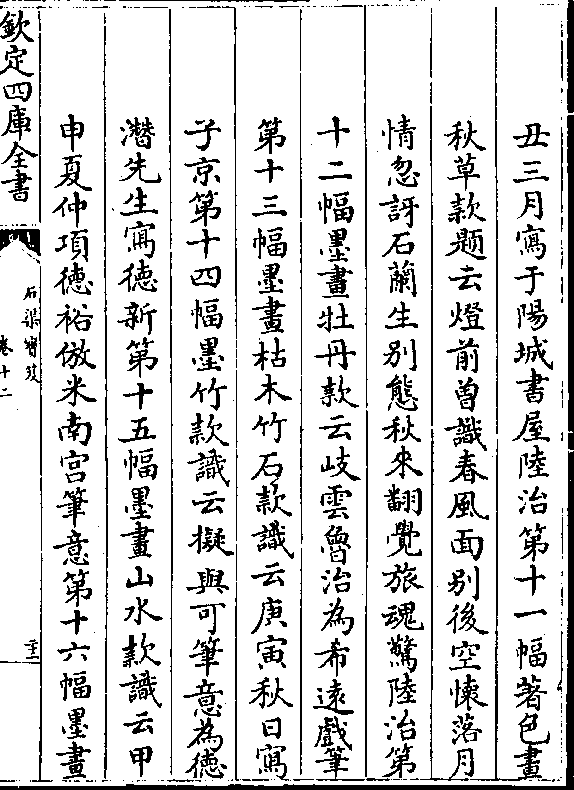 丑三月寫于陽城書屋陸治第十一幅著色畫
秋草款題云燈前曽識春風面别後空懐落月
情忽訝石蘭生别態秋来翻覺旅魂驚陸治第
十二幅墨畫牡丹款云岐雲魯治為希逺戲筆
第十三幅墨畫枯木竹石款識云庚寅秋日寫
子京第十四幅墨竹款識云擬與可筆意為徳
潛先生寫徳新第十五幅墨畫山水款識云甲
申夏仲項徳裕倣米南宫筆意第十六幅墨畫
欽定四庫全書
石渠寳笈
卷十二